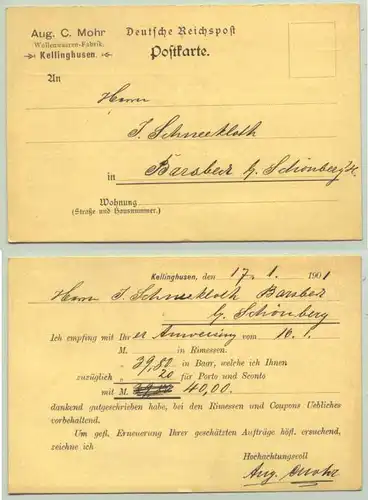 Aug. C. Mohr
Wollenwaaren-Fabrik.
Kellinghusen.
Deutsche Reichspost
Postkarte.
An
Herrn
J. Schneekloth
in Barsbek b/ Schönberg i/H.
Wohnung
(Straße und Hausnummer.)
Kellinghusen, den 17. 1. 1901
Herrn J. Schneekloth Barsbek
b/ Schönberg
Ich empfing mit Ihrer Anweisung vom 16. 1.
M. in Rimessen.
„ 39,80 in Baar, welche ich Ihnen
zuzüglich „ 20 für Porto und Sconto
mit M. 40,00.
dankend gutgeschrieben habe, bei den Rimessen und Coupons Uebliches
vorbehaltend.
Um gefl. Erneuerung Ihrer geschätzten Aufträge höfl. ersuchend,
zeichne ich
Hochachtungsvoll
Aug. C. Mohr